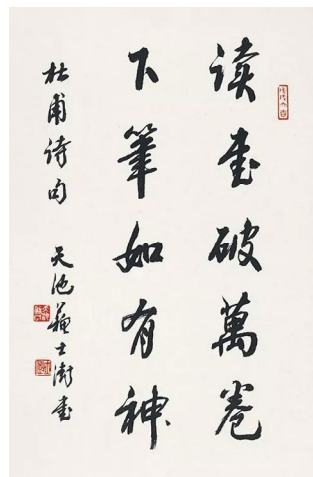 读书破萬卷
下筆如有神
杜甫诗句 天池苏士澍书